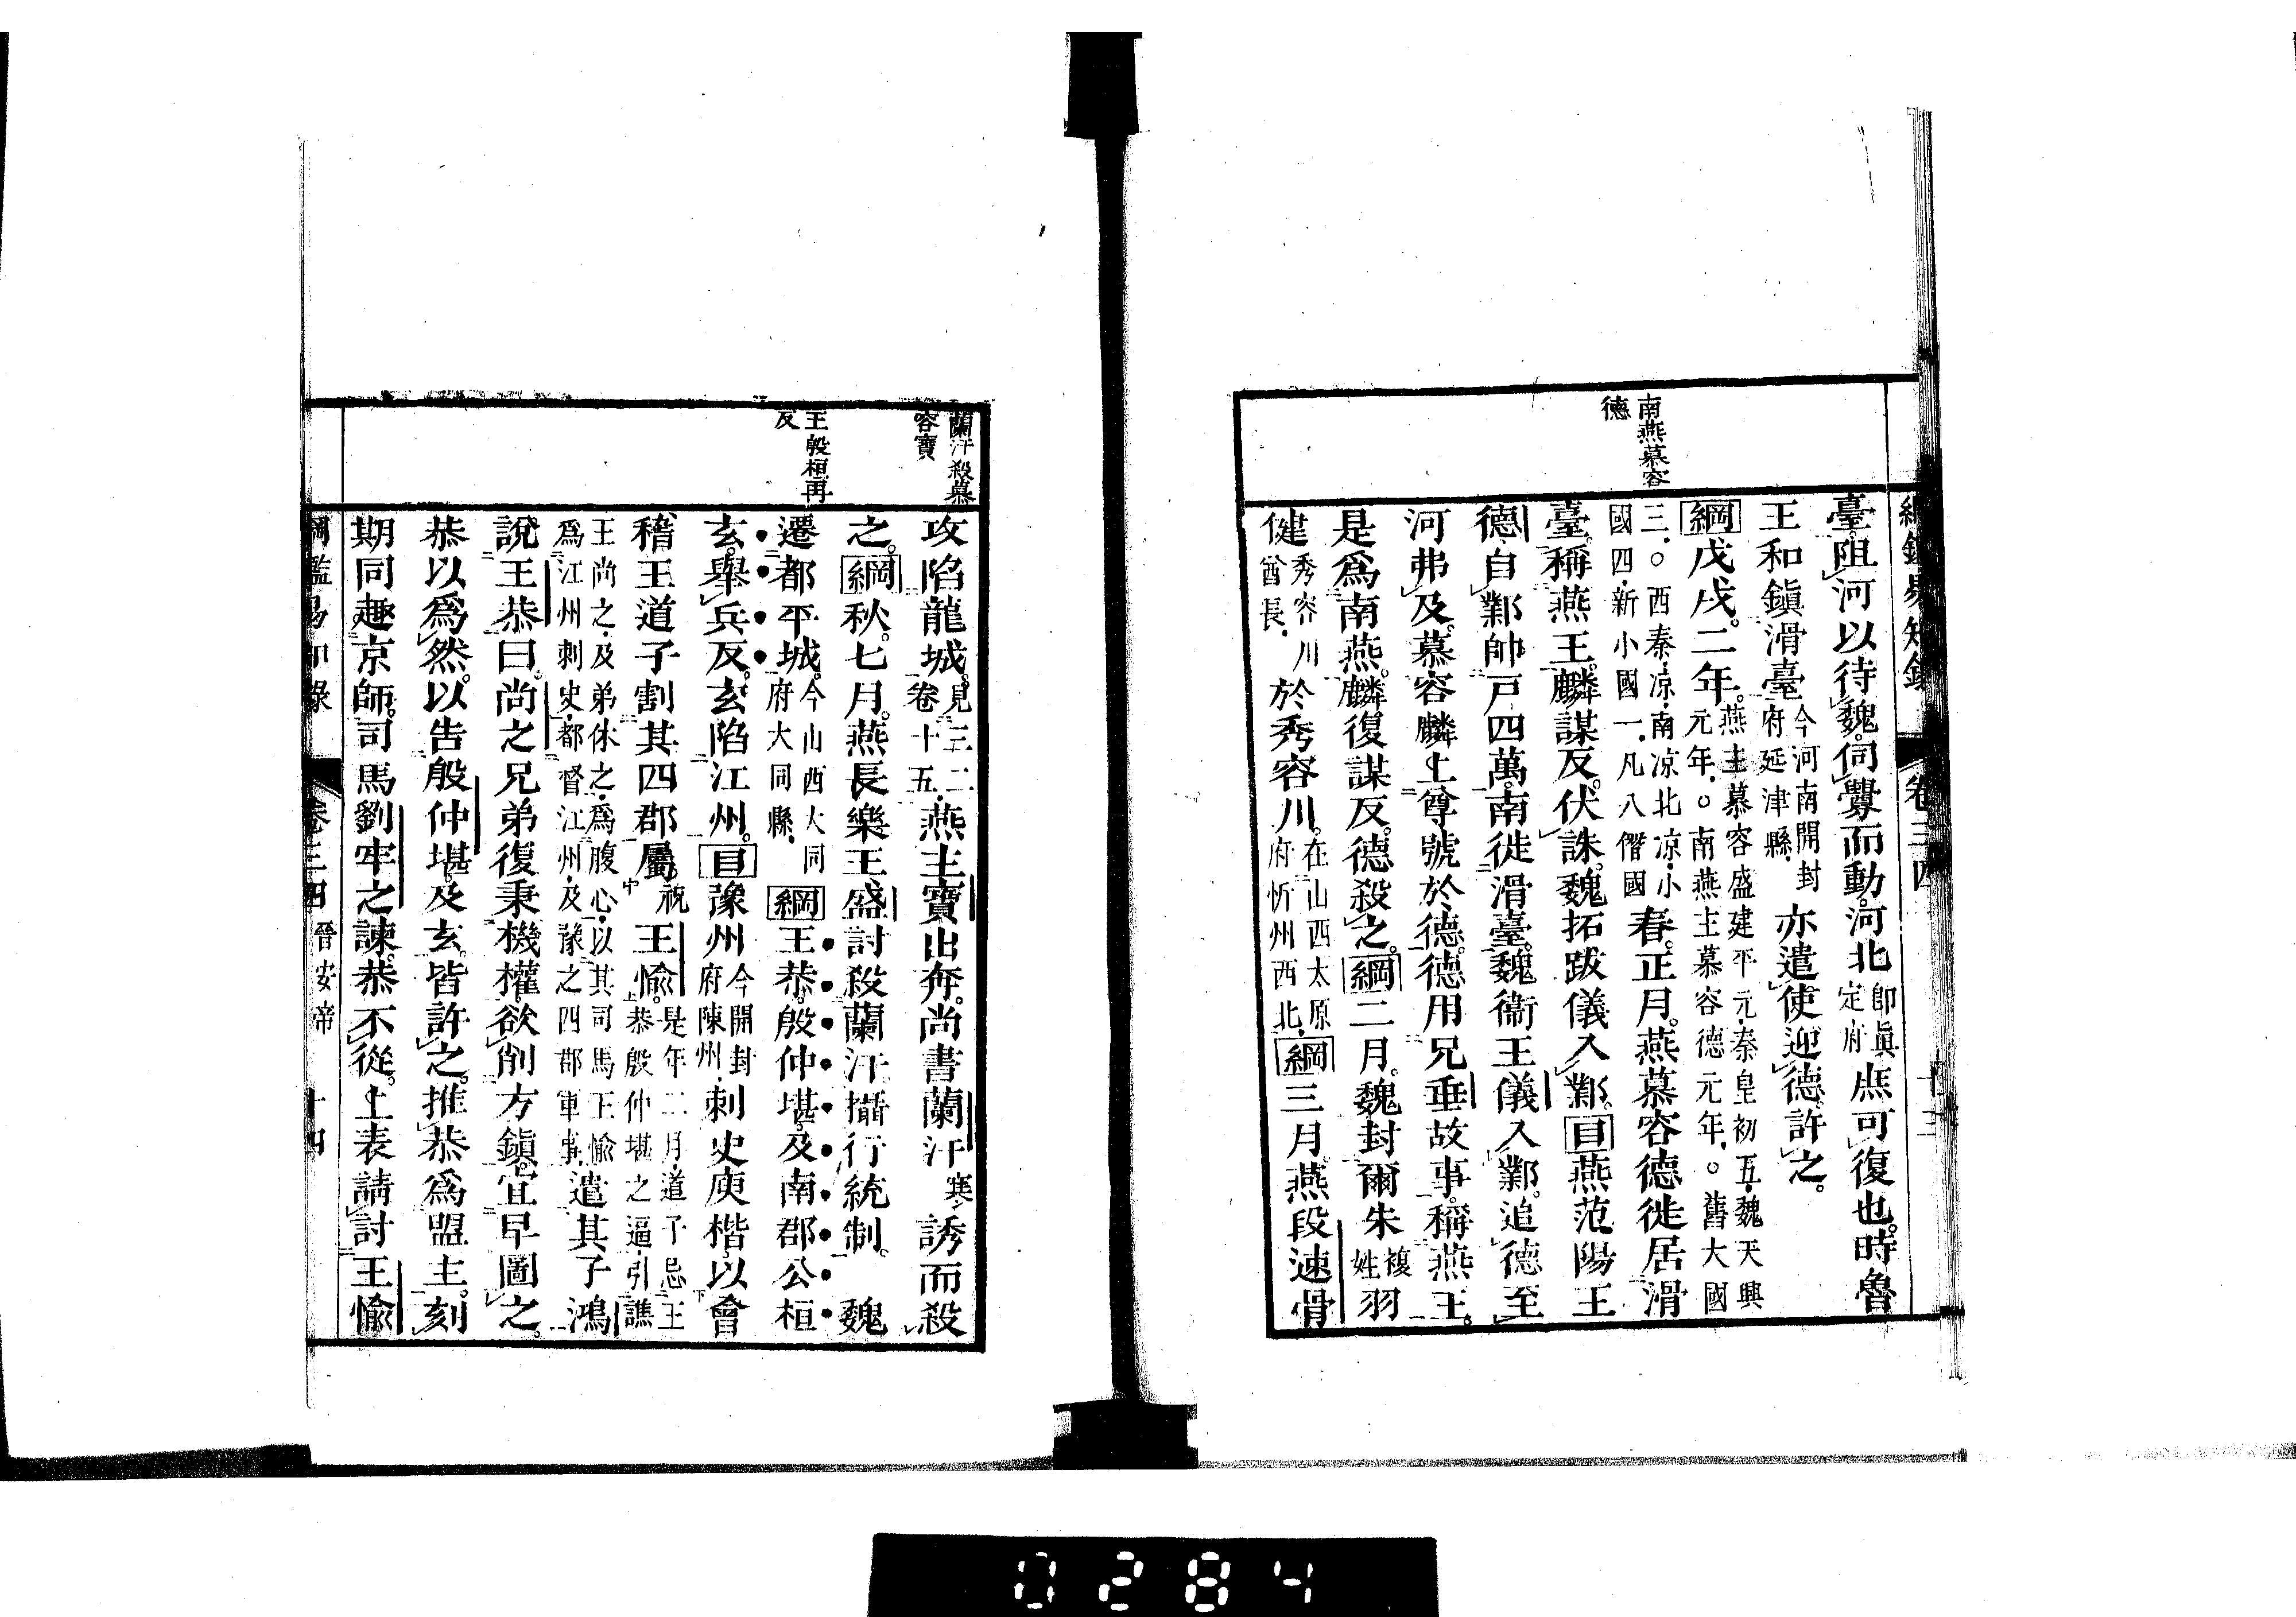 南燕慕容
德
臺。阻河以待魏。伺釁而動。河北卽眞定府庶可復也。時魯
王和鎭滑臺今河南開封府延津縣。亦遣使迎德。許之。
綱戊戌。二年。燕主慕容盛建平元。秦皇初五。魏天興元年。○南燕主慕容德元年。○舊大國
三。○西秦。凉。南凉。北凉。小國四。新小國一。凡八僭國春。正月。燕慕容德徙居滑
臺。稱燕王。麟謀反。伏誅。魏拓跋儀入鄴。目燕范陽王
德自鄴帥戸四萬。南徙滑臺。魏衞王儀入鄴。追德至
河弗及。慕容麟上尊號於德。德用兄垂故事。稱燕王。
是爲南燕。麟復謀反。德殺之。綱二月。魏封爾朱複姓羽
健秀容川酋長。於秀容川。在山西太原府忻州西北。綱三月燕段速骨
卷三四
蘭汗殺慕
容寶
王殷桓再
反
攻陷龍城。見三二卷十五。燕主寶出奔。尚書蘭汗寒誘而殺
之。綱秋。七月。燕長樂王盛討殺蘭汗。攝行統制。 魏
遷都平城。今山西大同府大同縣。綱王恭。殷仲堪。及南郡公桓
玄。舉兵反。玄陷江州。目豫州今開封府陳州。刺史庾楷。以會
稽王道子割其四郡屬。祝王愉。是年二月。道子忌王恭殷仲堪之逼。引譙
王尚之。及弟休之。爲腹心。以其司馬王愉爲江州刺史。都督江州。及豫之四郡軍事。遣其子鴻
說王恭曰。尚之兄弟復秉機權。欲削方鎭。宜早圖之。
恭以爲然。以告殷仲堪。及玄。皆許之。推恭爲盟主。刻
期同趣京師。司馬劉牢之諫。恭不從。上表請討王愉
綱鑑易知錄 卷三四 晉安帝 十四
0284